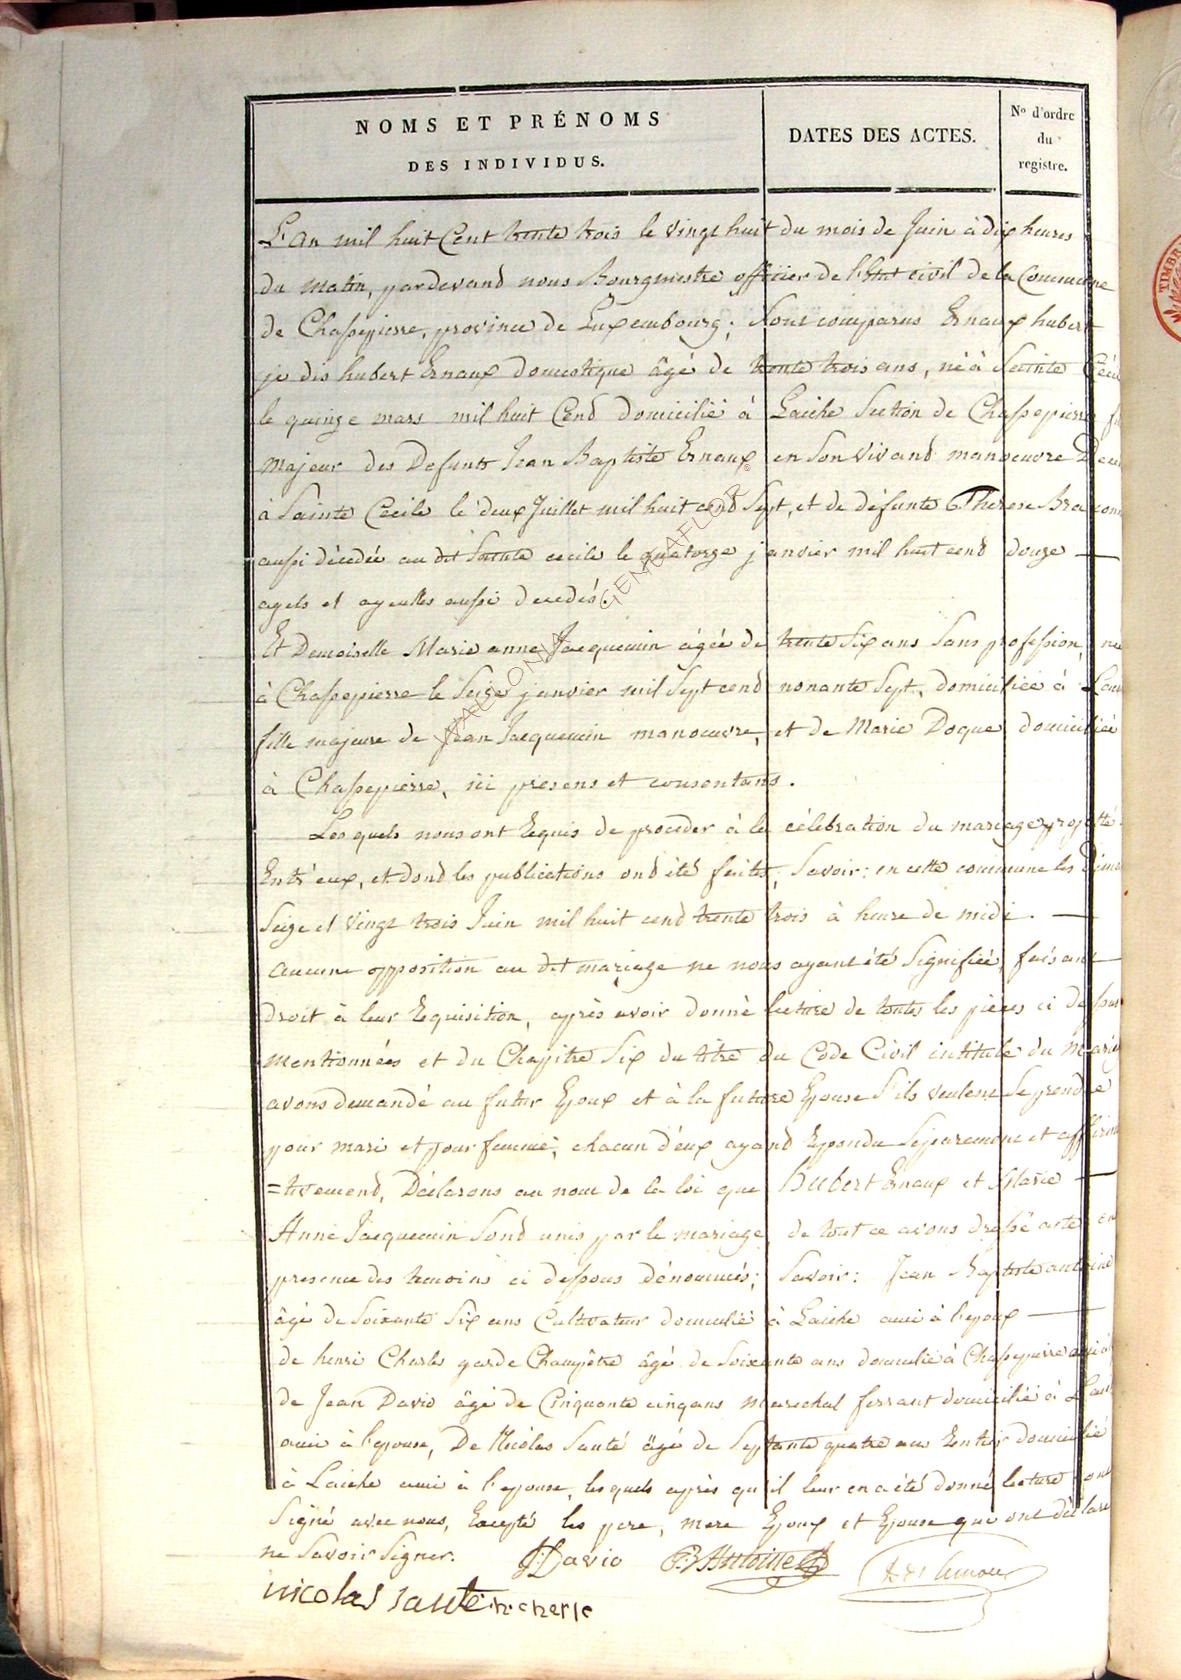 NOMS ET PRÉNOMS
DES INDIVIDUS.
DATES DES ACTES.
No d'ordre
du
registre.
L'An mil huit Cent trente trois le vingt huit du mois de Juin à dix heures
du matin, pardevand nous Bourgmestre officier de l'Etat civil de la Commune
de Chassepierre, province de Luxembourg; Sont comparus Ernaux hubert
je dis hubert Ernaux domestique âgé de trente trois ans, né à Sainte Céci
le quinze mars mil huit Cend domicilié à Laiche Section de Chassepierre fi
majeur des Defunts Jean Baptiste Ernaux en Son Vivand manoeuvre Décé
à Sainte Cecile le deux Juillet mil huit cend Sept, et de défunte Therese Braconn
aussi décédée au dit Sainte cecile le quatorze janvier mil huit cend douze
ayels et ayeulles aussi decedés.
Et Demoiselle Marie anne Jacquemin âgée de trente Six ans Sans profession, née
à Chassepierre le Seize janvier mil Sept cend nonante Sept, domiciliée à Lai
fille majeure de Jean Jacquemin manoeuvre, et de Marie Doque domiciliée
à Chassepierre, ici presens et consentans.
Les quels nous ont Requis de proceder à la célébration du mariage projetté
Entr'eux, et dond les publications ond été faites, Savoir: en cette commune les dima
Seize et Vingt trois Juin mil huit cend trente trois à heure de midi.
aucune opposition au dit mariage ne nous ayant été Signifiée, faisant
droit à leur Requisition, après avoir donné lecture de toutes les pièces ci dessus
mentionnées et du Chapitre Six du titre du Code Civil intitulé du Mariag
avons demandé au futur Epoux et à la future Epouse S'ils veulent Se prendre
pour mari et pour femme, chacun d'eux ayand Répondu Séparement et affirma
=tivemend, Déclarons au nom de la loi que Hubert Ernaux et Marie
Anne Jacquemin Sond unis par le mariage de tout ce avons dressé acte en
presence des temoins ci dessous dénommés; Savoir: Jean Baptiste antoine
âgé de Soixante Six ans Cultivateur domicilié à Laiche ami à l'epoux
de henri Cherle garde Champêtre âgé de Soixante ans domicilié à Chassepierre ami à
de Jean David âgé de Cinquante cinq ans Marechal ferrant domicilié à Lai
ami à l'epouse, De Nicolas Santé âgé de Septante quatre ans Rentier domicilié
à Laiche ami à l'epouse, lesquels après qu'il leur en a été donné lecture ont
Signé avec nous, Excepté les pere, mere Epoux et Epouse qui ont déclaré
ne Savoir Signer. J:David P:B Antoine
nicolas sante h:cherle
WALLONIA GENEAFLOR ©
TIMBR